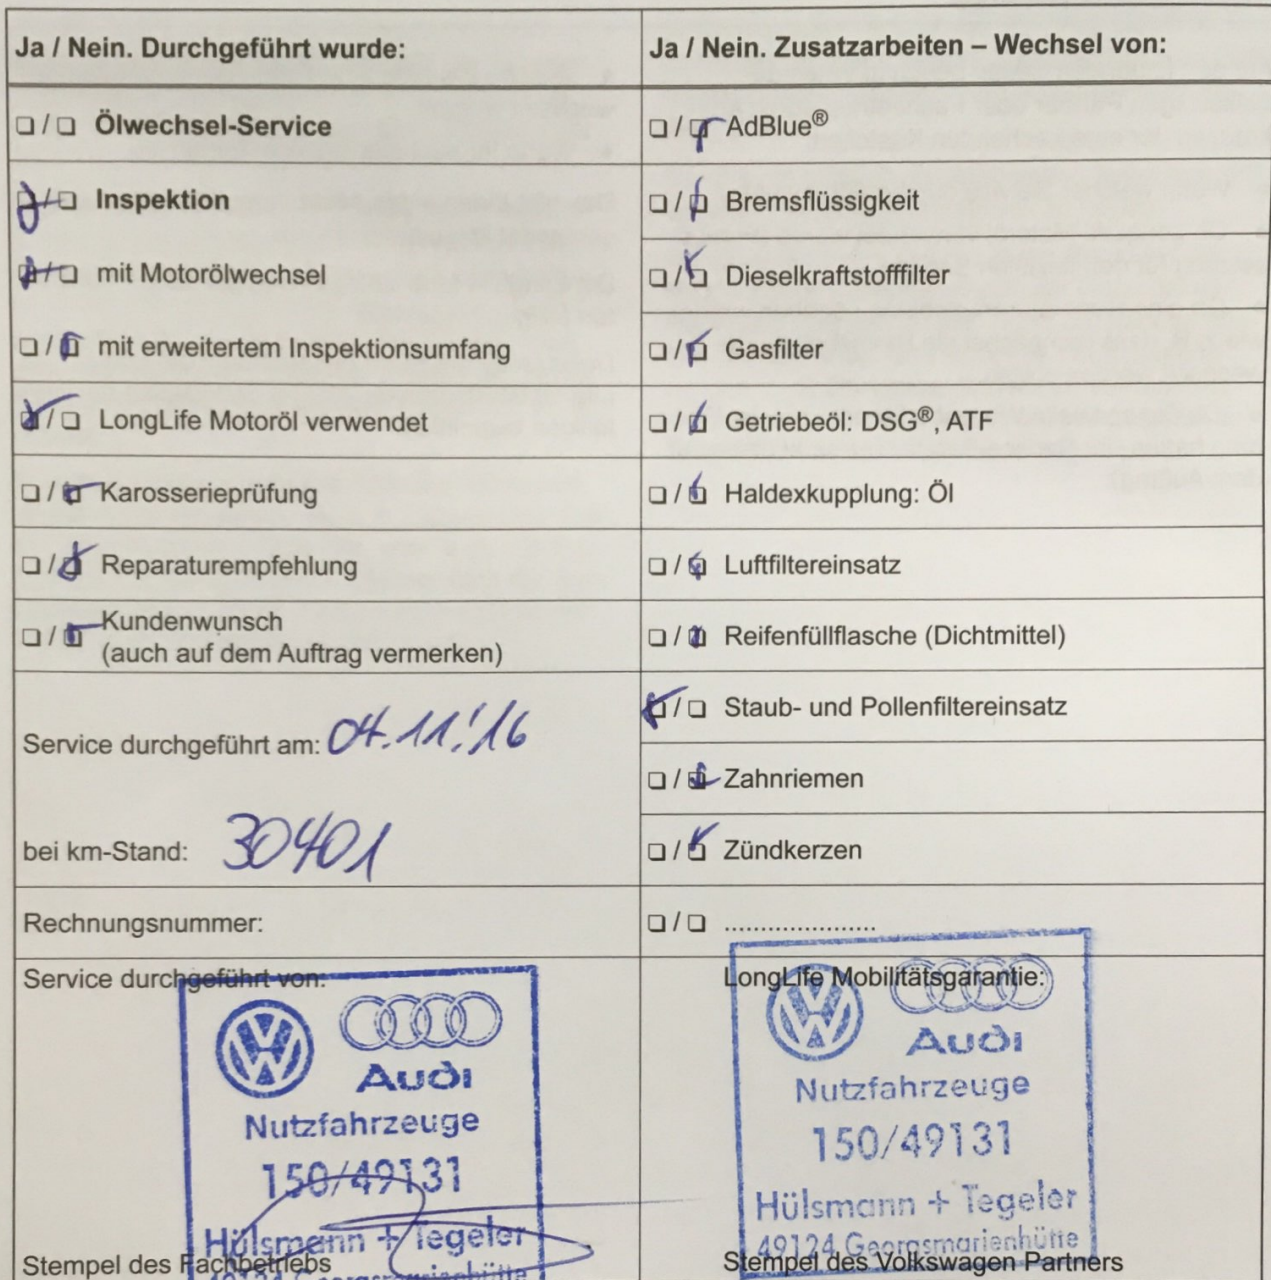 Ja / Nein. Durchgeführt wurde:
❏ / ❏ Ölwechsel-Service
❏ / ❏ Inspektion
❏ / ❏ mit Motorölwechsel
❏ / ❏ mit erweitertem Inspektionsumfang
❏ / ❏ LongLife Motoröl verwendet
❏ / ❏ Karosserieprüfung
❏ / ❏ Reparaturempfehlung
❏ / ❏ Kundenwunsch
(auch auf dem Auftrag vermerken)
Service durchgeführt am: 04.11.'16
bei km-Stand: 30401
Rechnungsnummer:
Service durchgeführt von:
Audi
Nutzfahrzeuge
150/49131
Hülsmann + Tegeler
Stempel des Fachbetriebs
49124 Georgsmarienhütte
Ja / Nein. Zusatzarbeiten – Wechsel von:
❏ / ❏ AdBlue®
❏ / ❏ Bremsflüssigkeit
❏ / ❏ Dieselkraftstofffilter
❏ / ❏ Gasfilter
❏ / ❏ Getriebeöl: DSG®, ATF
❏ / ❏ Haldexkupplung: Öl
❏ / ❏ Luftfiltereinsatz
❏ / ❏ Reifenfüllflasche (Dichtmittel)
❏ / ❏ Staub- und Pollenfiltereinsatz
❏ / ❏ Zahnriemen
❏ / ❏ Zündkerzen
❏ / ❏ .....................
LongLife Mobilitätsgarantie:
Audi
Nutzfahrzeuge
150/49131
Hülsmann + Tegeler
49124 Georgsmarienhütte
Stempel des Volkswagen Partners